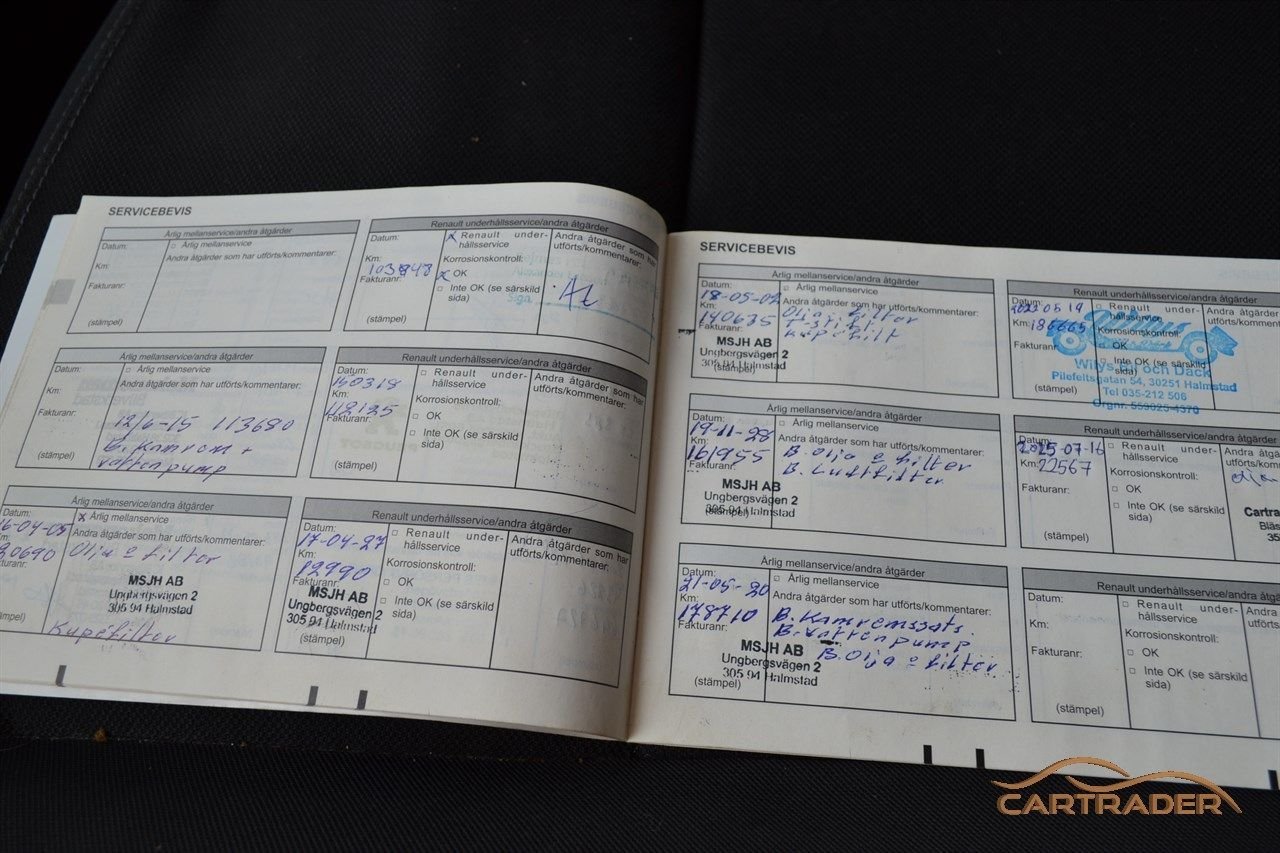 SERVICEBEVIS
Årlig mellanservice/andra åtgärder
Datum:
□ Årlig mellanservice
Andra åtgärder som har utförts/kommentarer:
Km:
Fakturanr:
(stämpel)
Renault underhållsservice/andra åtgärder
Datum:
x Renault under-
hållsservice
Andra åtgärder som har
utförts/kommentarer:
Km:
103848
Korrosionskontroll:
x OK
Fakturanr:
□ Inte OK (se särskild
sida)
Sign.
(stämpel)
Årlig mellanservice/andra åtgärder
Datum:
□ Årlig mellanservice
Andra åtgärder som har utförts/kommentarer:
Km:
12/6-15 113680
Fakturanr:
B. Kamrem +
vattenpump
(stämpel)
Renault underhållsservice/andra åtgärder
□ Renault under-
hållsservice
Andra åtgärder som har
utförts/kommentarer:
Km:
Korrosionskontroll:
□ OK
Fakturanr:
□ Inte OK (se särskild
sida)
(stämpel)
Årlig mellanservice/andra åtgärder
16-04-05
x Årlig mellanservice
Andra åtgärder som har utförts/kommentarer:
Olja o filter
MSJH AB
Ungbergsvägen 2
305 94 Halmstad
Kupéfilter
Renault underhållsservice/andra åtgärder
Datum:
17-04-27
□ Renault under-
hållsservice
Andra åtgärder som har
utförts/kommentarer:
Km:
12990
Korrosionskontroll:
□ OK
Fakturanr:
□ Inte OK (se särskild
sida)
MSJH AB
Ungbergsvägen 2
305 94 Halmstad
(stämpel)
SERVICEBEVIS
Årlig mellanservice/andra åtgärder
Datum:
18-05-02
□ Årlig mellanservice
Andra åtgärder som har utförts/kommentarer:
Km:
140635
Olja, filter
Fakturanr:
Kupéfilt
MSJH AB
Ungbergsvägen 2
305 94 Halmstad
(stämpel)
Renault underhållsservice/andra
Datum:
2023 05 19
□ Renault under-
hållsservice
Andra åtgärder
utförts/kommentarer
Km: 186665
Korrosionskontroll:
□ OK
Fakturanr:
□ Inte OK (se särskild
sida)
Willys Bil och Däck
Pilefeltsgatan 54, 30251 Halmstad
Tel 035-212 506
Orgnr. 559025-4370
(stämpel)
Årlig mellanservice/andra åtgärder
Datum:
19-11-28
□ Årlig mellanservice
Andra åtgärder som har utförts/kommentarer:
Km:
161955
B. Olja o filter
B. Luftfilter
Fakturanr:
MSJH AB
Ungbergsvägen 2
305 94 Halmstad
(stämpel)
Renault underhållsservice/andra åtgärder
Datum:
2025-07-16
□ Renault under-
hållsservice
Km: 22567
Korrosionskontroll:
□ OK
Fakturanr:
□ Inte OK (se särskild
sida)
(stämpel)
Årlig mellanservice/andra åtgärder
Datum:
21-05-20
□ Årlig mellanservice
Andra åtgärder som har utförts/kommentarer:
Km:
178710
B. Kamremssats.
B. Vattenpump
Fakturanr:
B. Olja o filter
MSJH AB
Ungbergsvägen 2
305 94 Halmstad
(stämpel)
Renault underhållsservice/andra
Datum:
□ Renault under-
hållsservice
Km:
Korrosionskontroll:
□ OK
Fakturanr:
□ Inte OK (se särskild
sida)
(stämpel)
CARTRADER